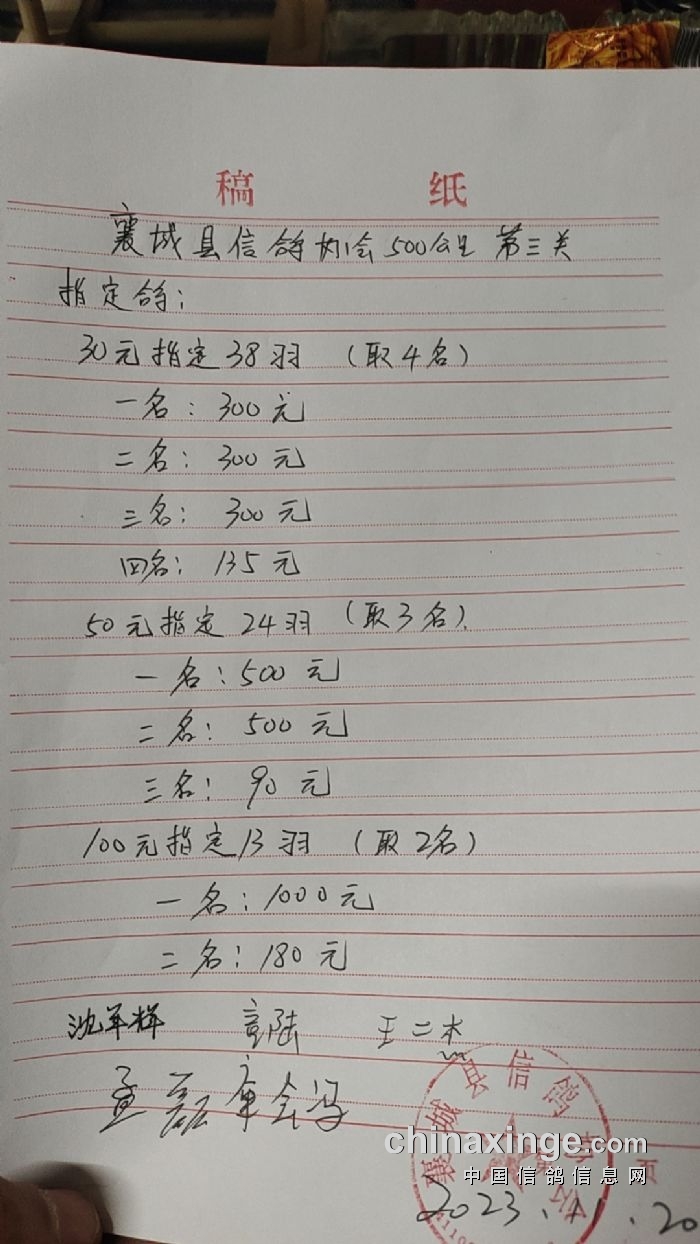 稿 纸
襄城县信鸽协会500公里 第三关
指定鸽:
30元指定38羽 (取4名)
一名: 300元
二名: 300元
三名: 300元
四名: 135元
50元指定 24羽 (取3名).
一名: 500元
二名: 500元
三名: 90元
100元指定13羽 (取2名)
一名: 1000元
二名: 180元
沈军辉 王二木
孟磊
襄城县信鸽协会
chinaxinge.com
中国信鸽信息网
页
2023.11.20